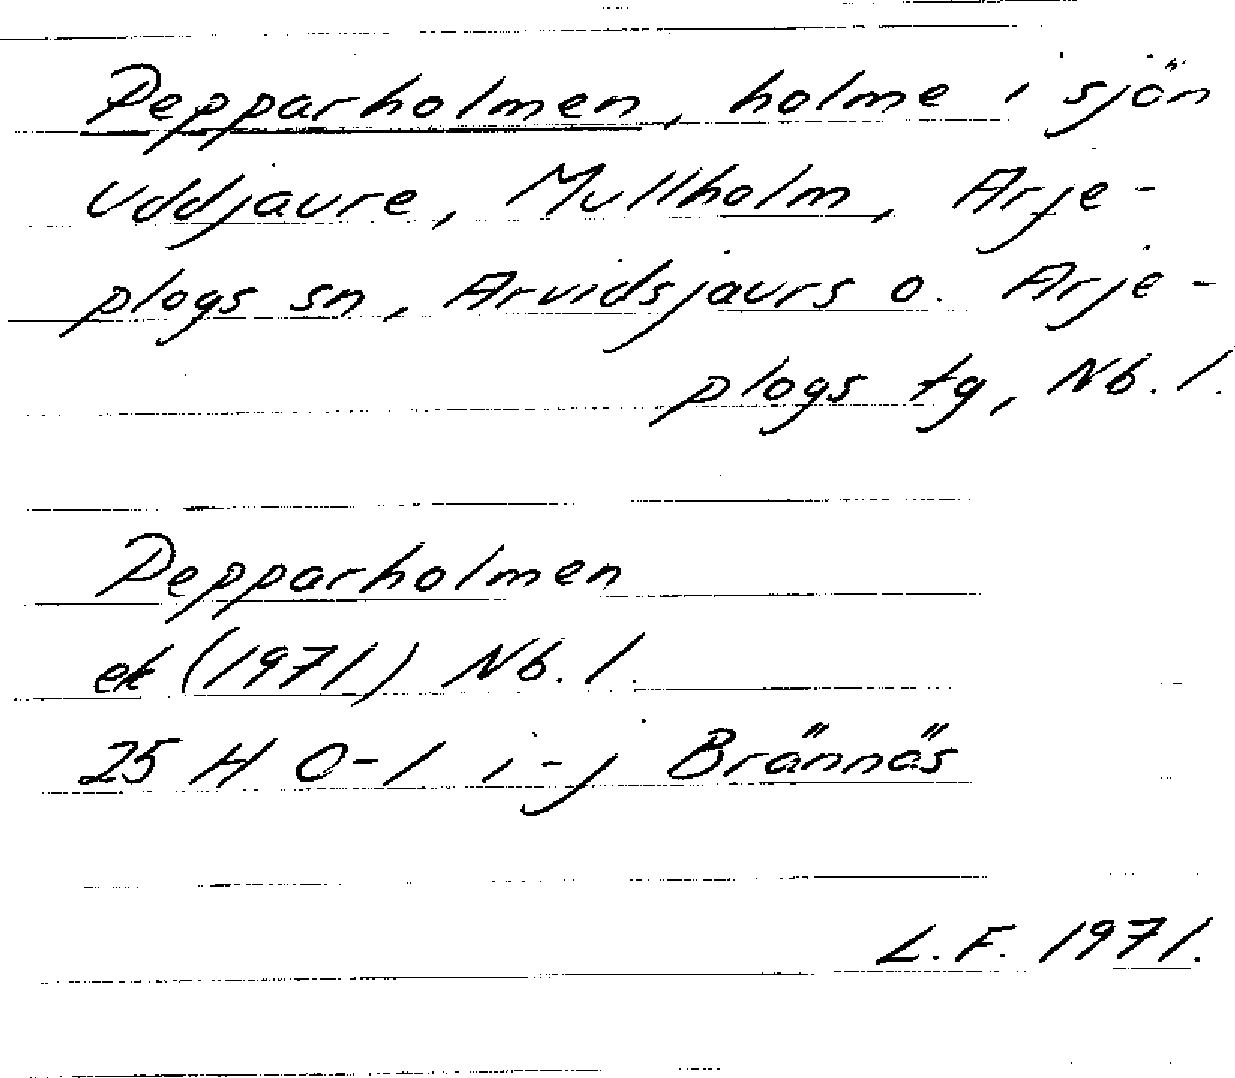 Pepparholmen, holme i sjön
Uddjaure, Mullholm, Arje-
plogs sn, Arvidsjaurs o. Arje-
plogs tg, Nb. l.
Pepparholmen
ek (1971) Nb. l.
25 H 0-1 i-j Brännäs
L.F. 1971.